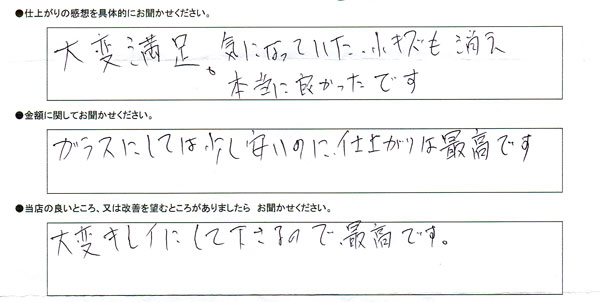 ●仕上がりの感想を具体的にお聞かせください。
大変満足。気になっていた、小キズも消え
本当に良かったです
●金額に関してお聞かせください。
ガラスにしては少し安いのに、仕上がりは最高です
●当店の良いところ、又は改善を望むところがありましたら　お聞かせください。
大変キレイにして下さるので、最高です。